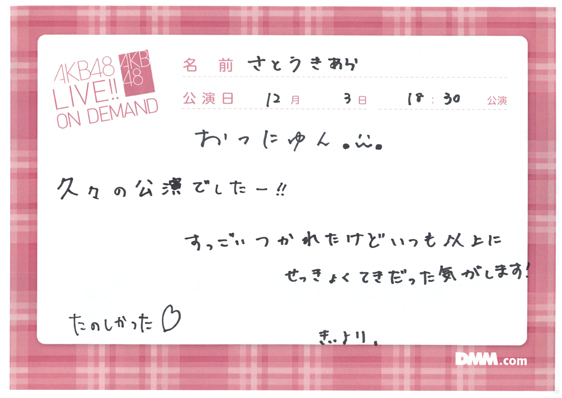 AKB48
LIVE!!
ON DEMAND
AKB
48
名前 さとうきあら
公演日 12月 3日 18:30 公演
おつにゅん
久々の公演でしたー!!
すっごいつかれたけどいつも以上に
せっきょくてきだった気がします!
たのしかった♡
きぃより.
DMM.com